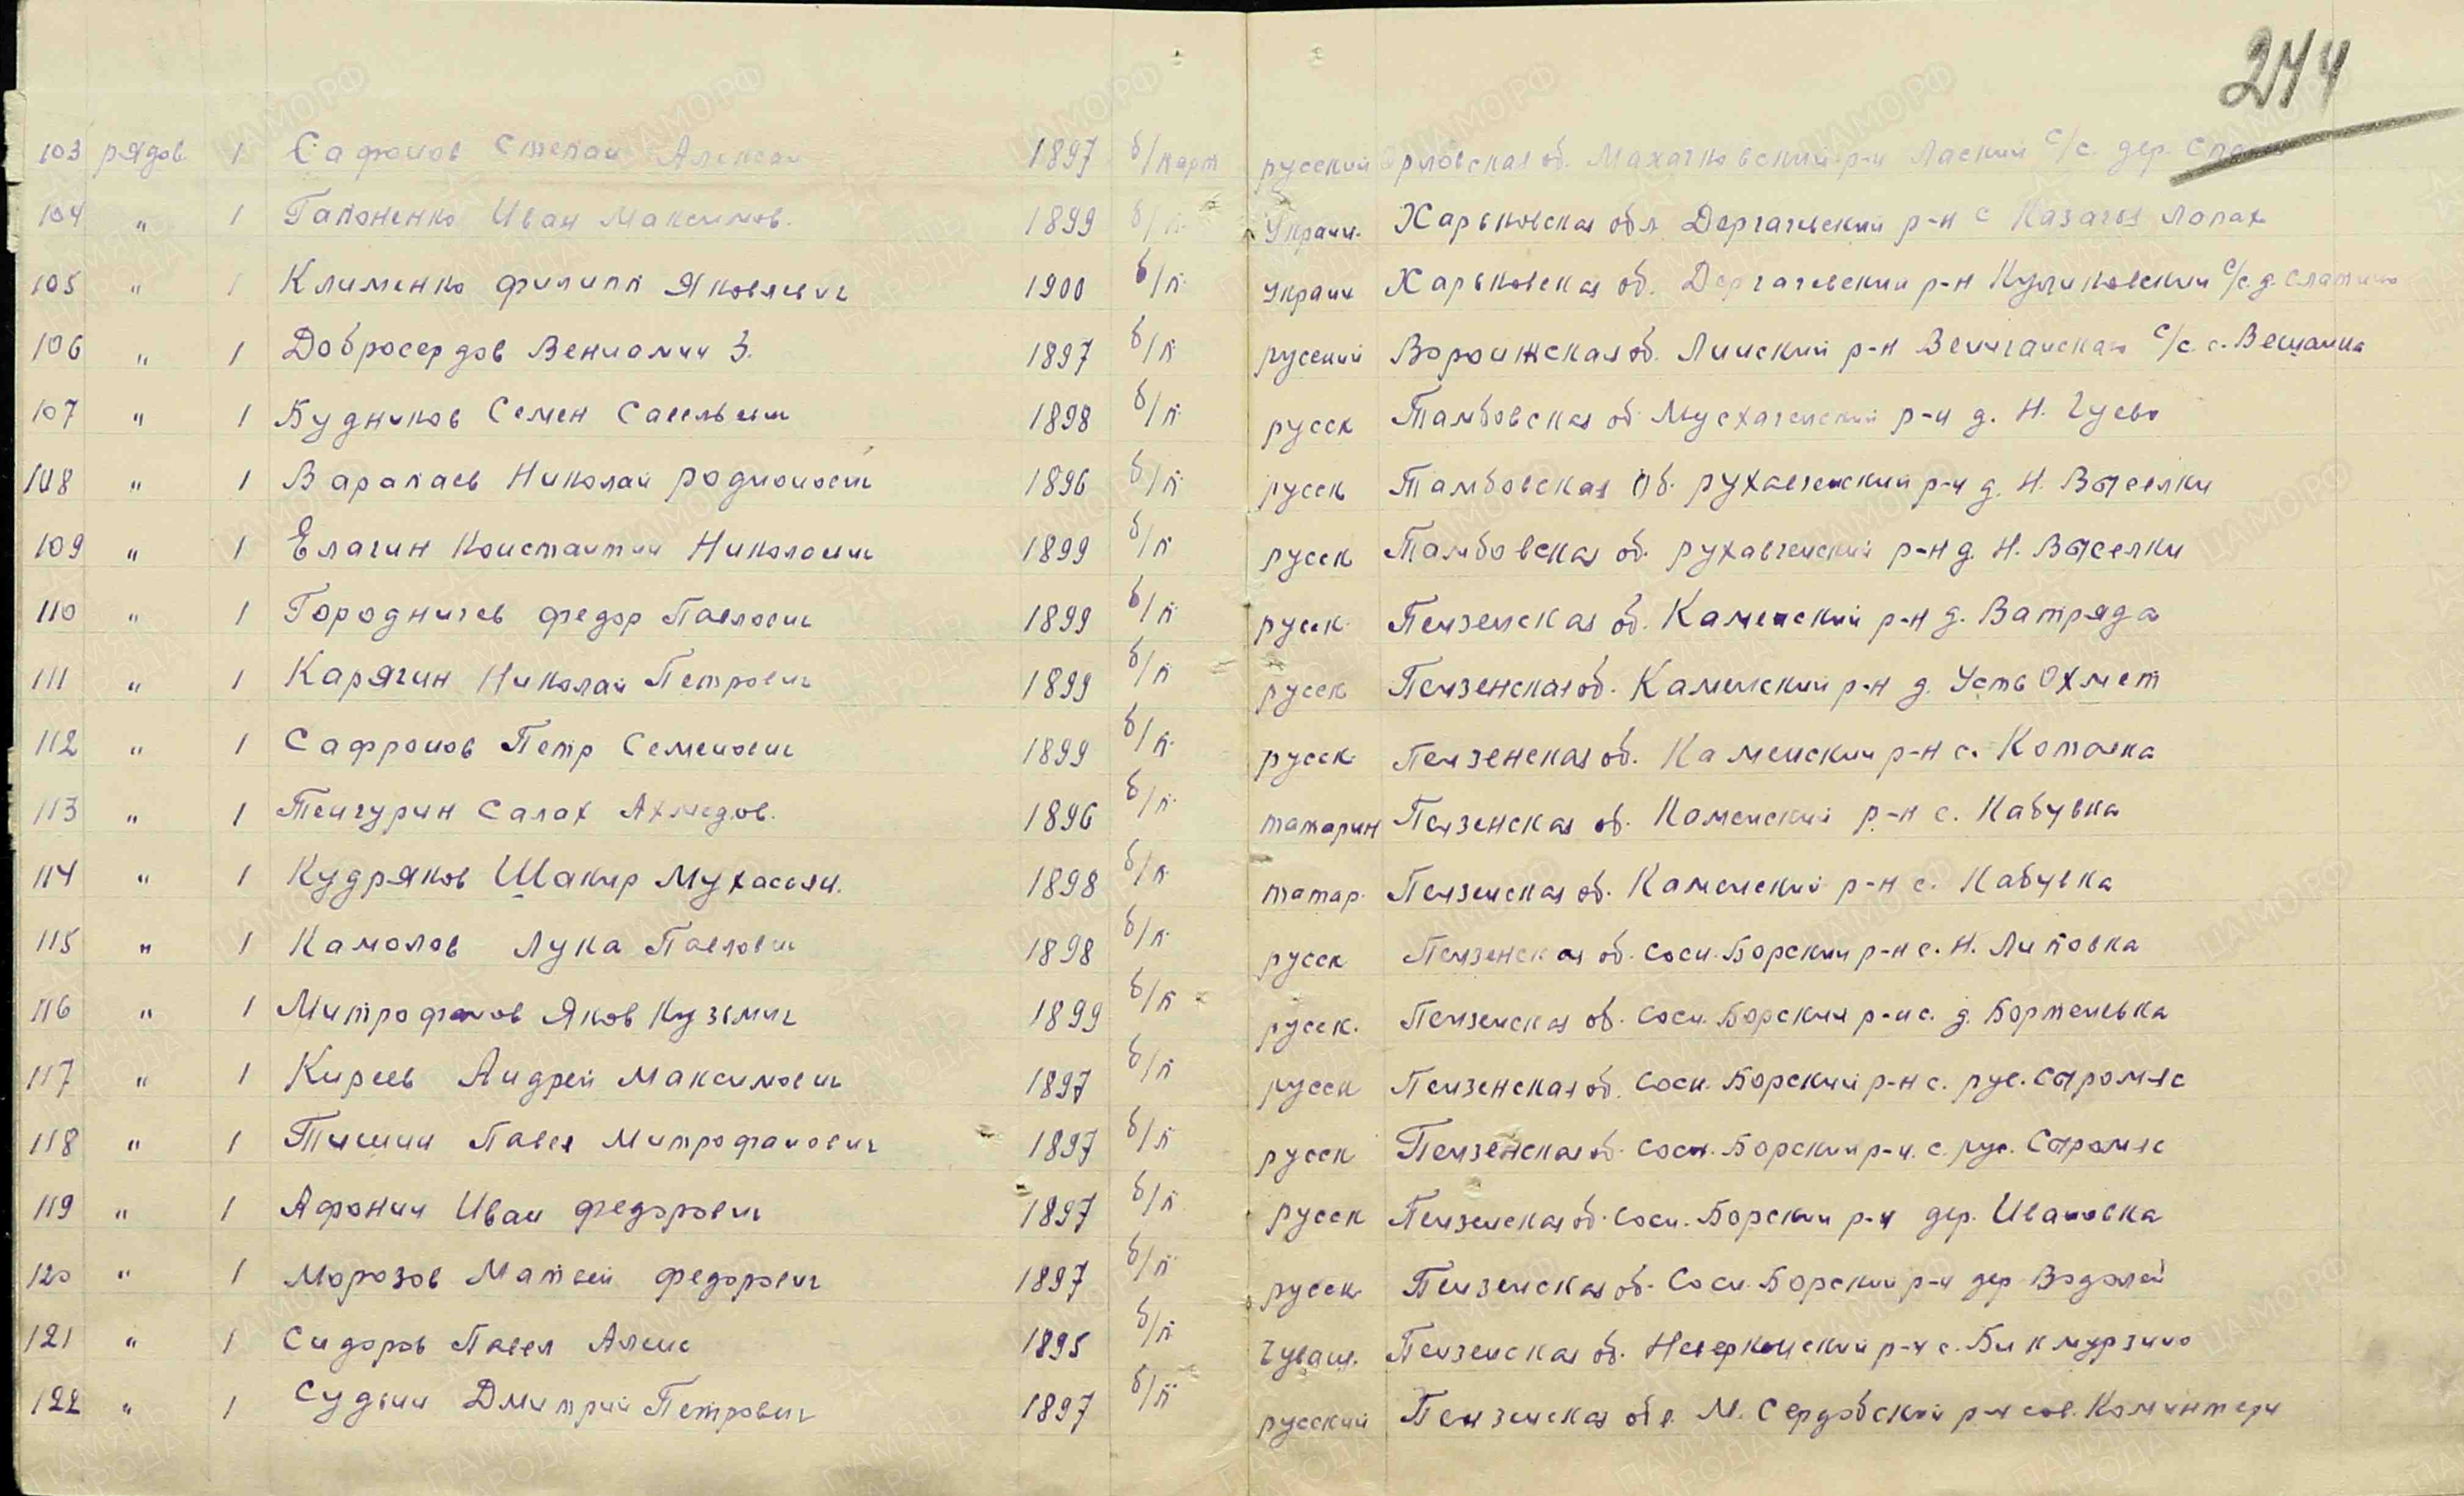 244
103 рядов. 1 Сафонов Степан Алексан 1897 б/парт русский Орловская об. р-н с/с. дер.
104 " 1 Гапоненко Иван Максимов. 1899 б/п. Украин. Харьковская обл Дергачевский р-н с Казачья Лопах
105 " 1 Клименко Филипп Яковлевич 1900 б/п. Украин Харьковская об. Дергачевский р-н Куликовский с/с. д. Слатино
106 " 1 Добросердов Вениамин З. 1897 б/п. русский Воронжская об. р-н с/с. с.
107 " 1 Будников Семен Савельевич 1898 б/п. русск Тамбовская об р-н д. Н. Гуево
108 " 1 Варапаев Николай Родионович 1896 б/п. русск Тамбовская об. р-н д. Н. Выселки
109 " 1 Елагин Константин Николаевич 1899 б/п. русск Тамбовская об. р-н д. Н. Выселки
110 " 1 Городничев Федор Павлович 1899 б/п. русск. Пензенская об. Каменский р-н д. Ватряда
111 " 1 Карягин Николай Петрович 1899 б/п русск Пензенская об. Каменский р-н д. Усть Охмет
112 " 1 Сафронов Петр Семенович 1899 б/п. русск. Пензенская об. Каменский р-н с.
113 " 1 Тенгурин Салах Ахмедов. 1896 б/п. татарин Пензенская об. Каменский р-н с. Кабувка
114 " 1 Кудряков Шакир 1898 б/п. татар. Пензенская об. Каменский р-н с. Кабувка
115 " 1 Камолов Лука Павлович 1898 б/п. русск Пензенская об. Сосн. Борский р-н с. Н. Липовка
116 " 1 Митрофанов Яков Кузьмич 1899 б/п русск. Пензенская об. Сосн. Борский р-н с. д.
117 " 1 Киреев Андрей Максимович 1897 б/п русск Пензенская об. Сосн. Борский р-н с. рус. Сыромяс
118 " 1 Тишин Павел Митрофанович 1897 б/п русск Пензенская об. Сосн. Борский р-н. с. рус. Сыромяс
119 " 1 Афонин Иван Федорович 1897 б/п русск Пензенская об. Сосн. Борский р-н дер. Ивановка
120 " 1 Морозов Матвей Федорович 1897 б/п русск Пензенская об. Сосн. Борский р-н дер Водолей
121 " 1 Сидоров Павел Алекс 1895 б/п Чуваш. Пензенская об. Неверкинский р-н с. Бикмурзино
122 " 1 Судьин Дмитрий Петрович 1897 б/п русский Пензенская обл. М. Сердобский р-н сов. Коминтерн